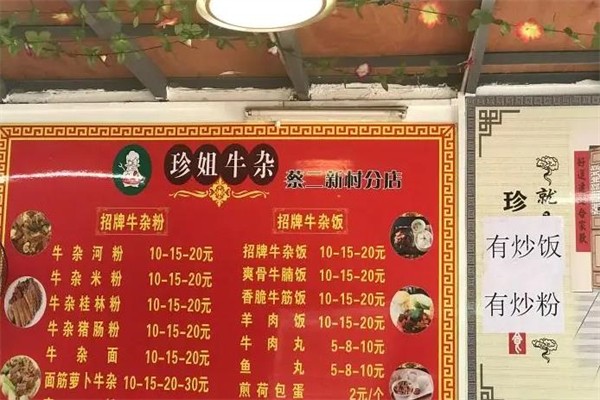 珍姐牛杂
蔡二新村分店
招牌牛杂粉
牛杂河粉 10-15-20元
牛杂米粉 10-15-20元
牛杂桂林粉 10-15-20元
牛杂猪肠粉 10-15-20元
牛杂面 10-15-20元
面筋萝卜牛杂 10-15-20-30元
招牌牛杂饭
招牌牛杂饭 10-15-20元
爽骨牛腩饭 10-15-20元
香脆牛筋饭 10-15-20元
羊肉饭 10-15-20元
牛肉丸 5-8-10元
鱼丸 5-8-10元
煎荷包蛋 2元/个
就
珍
有炒饭
有炒粉